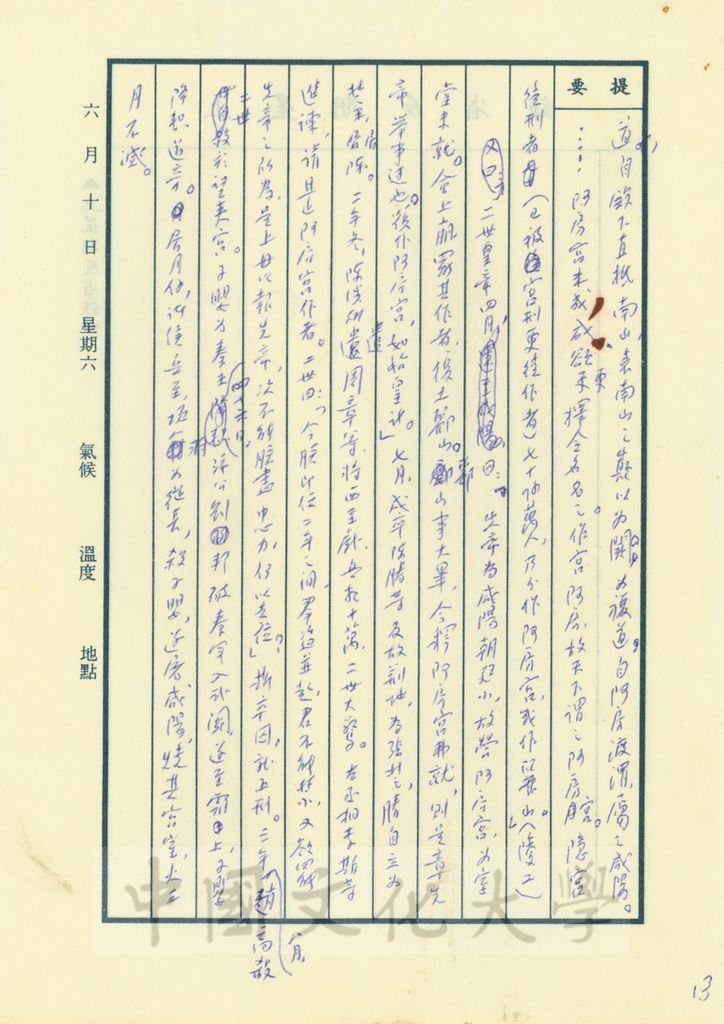 提要
道，自殿下直抵南山，表南山之巔以為闕，為復道，自阿房渡渭，屬之咸陽。
……阿房宮未成，成欲更擇令名名之。作宮阿房，故天下謂之阿房宮。隱宮
徒刑者（已被宮刑更徒作者）七十餘萬人，乃分作阿房宮，或作驪山（陵工）
又曰：二世皇帝四月，還至咸陽，曰：「先帝為咸陽朝廷小，故營阿房宮，為室
堂未就。會上崩，罷其作者，復土酈山。酈山事大畢，今釋阿房宮弗就，則是章先
帝舉事過也。復作阿房宮，如始皇計。」七月，戍卒陳勝等反故荊地，為張楚，勝自立為
楚王，居陳。二年冬，陳涉所遣周章等將西至戲，兵數十萬，二世大驚。右丞相李斯等
進諫，請且止阿房宮作者。二世曰：「今朕即位二年之間，羣盜並起，君不能禁，又欲罷
先帝之所為，是上毋以報先帝，次不為朕盡忠力，何以在位？」斯卒囚，就五刑。三年八月，趙高殺
二世於望夷宮。子嬰為秦王四十六日，沛公劉邦破秦軍入武關，遂至霸上，子嬰
降軹道旁。居月餘，諸侯兵至，項羽為從長，殺子嬰，遂屠咸陽，燒其宮室，火三
月不滅。
六月十日 星期六 氣候 溫度 地點
中國文化大學
13